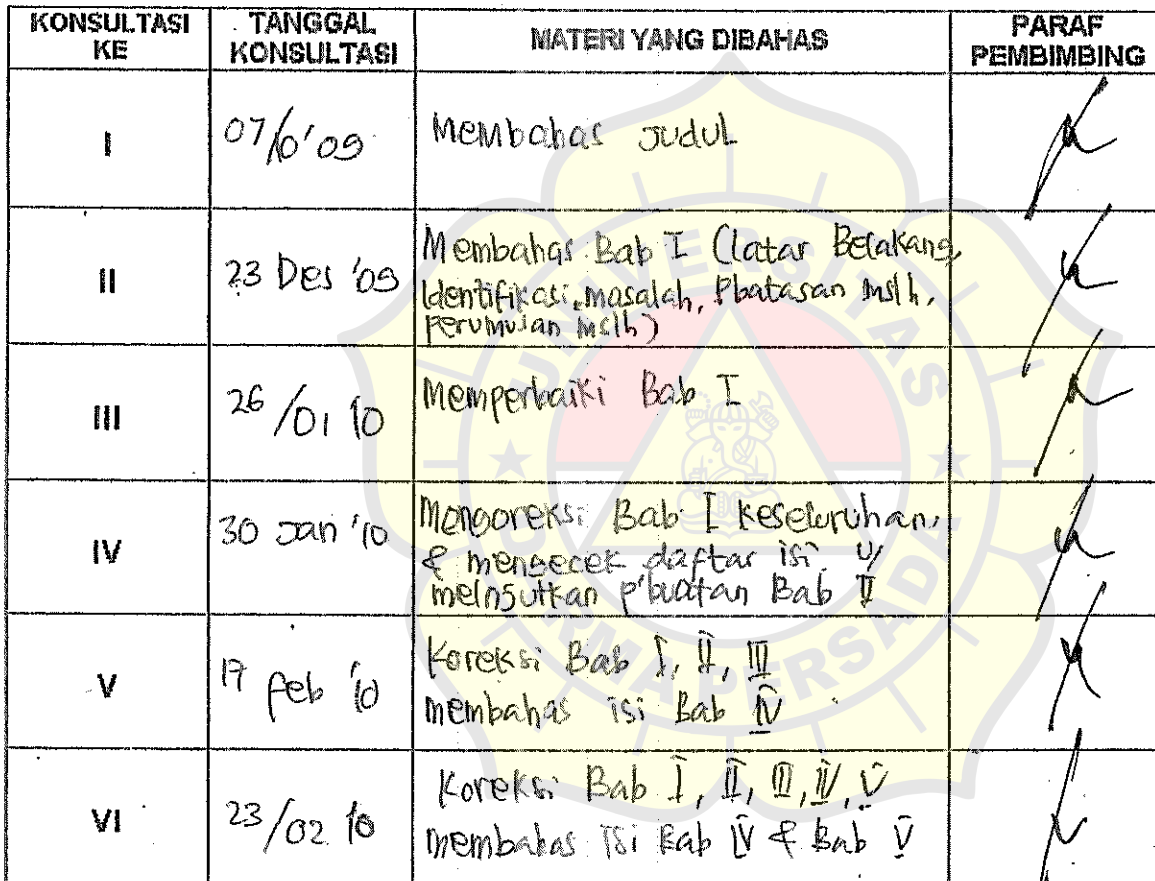 KONSULTASI KE
TANGGAL KONSULTASI
MATERI YANG DIBAHAS
PARAF PEMBIMBING
I
07/10'09
Membahas Judul
II
23 Des '09
Membahas Bab I (Latar Belakang,
Identifikasi, masalah, Pbatasan mslh,
Perumusan mslh)
III
26/01 10
Memperbaiki Bab I
IV
30 Jan '10
Mengoreksi Bab I keseluruhan,
& mengecek daftar isi. u/
melnjutkan p'buatan Bab II
V
17 Feb '10
Koreksi Bab I, II, III
membahas isi Bab IV
VI
23/02 10
Koreksi Bab I, II, III, IV, V
membahas isi Bab IV & Bab V
UNIVERSITAS
DARMA PERSADA